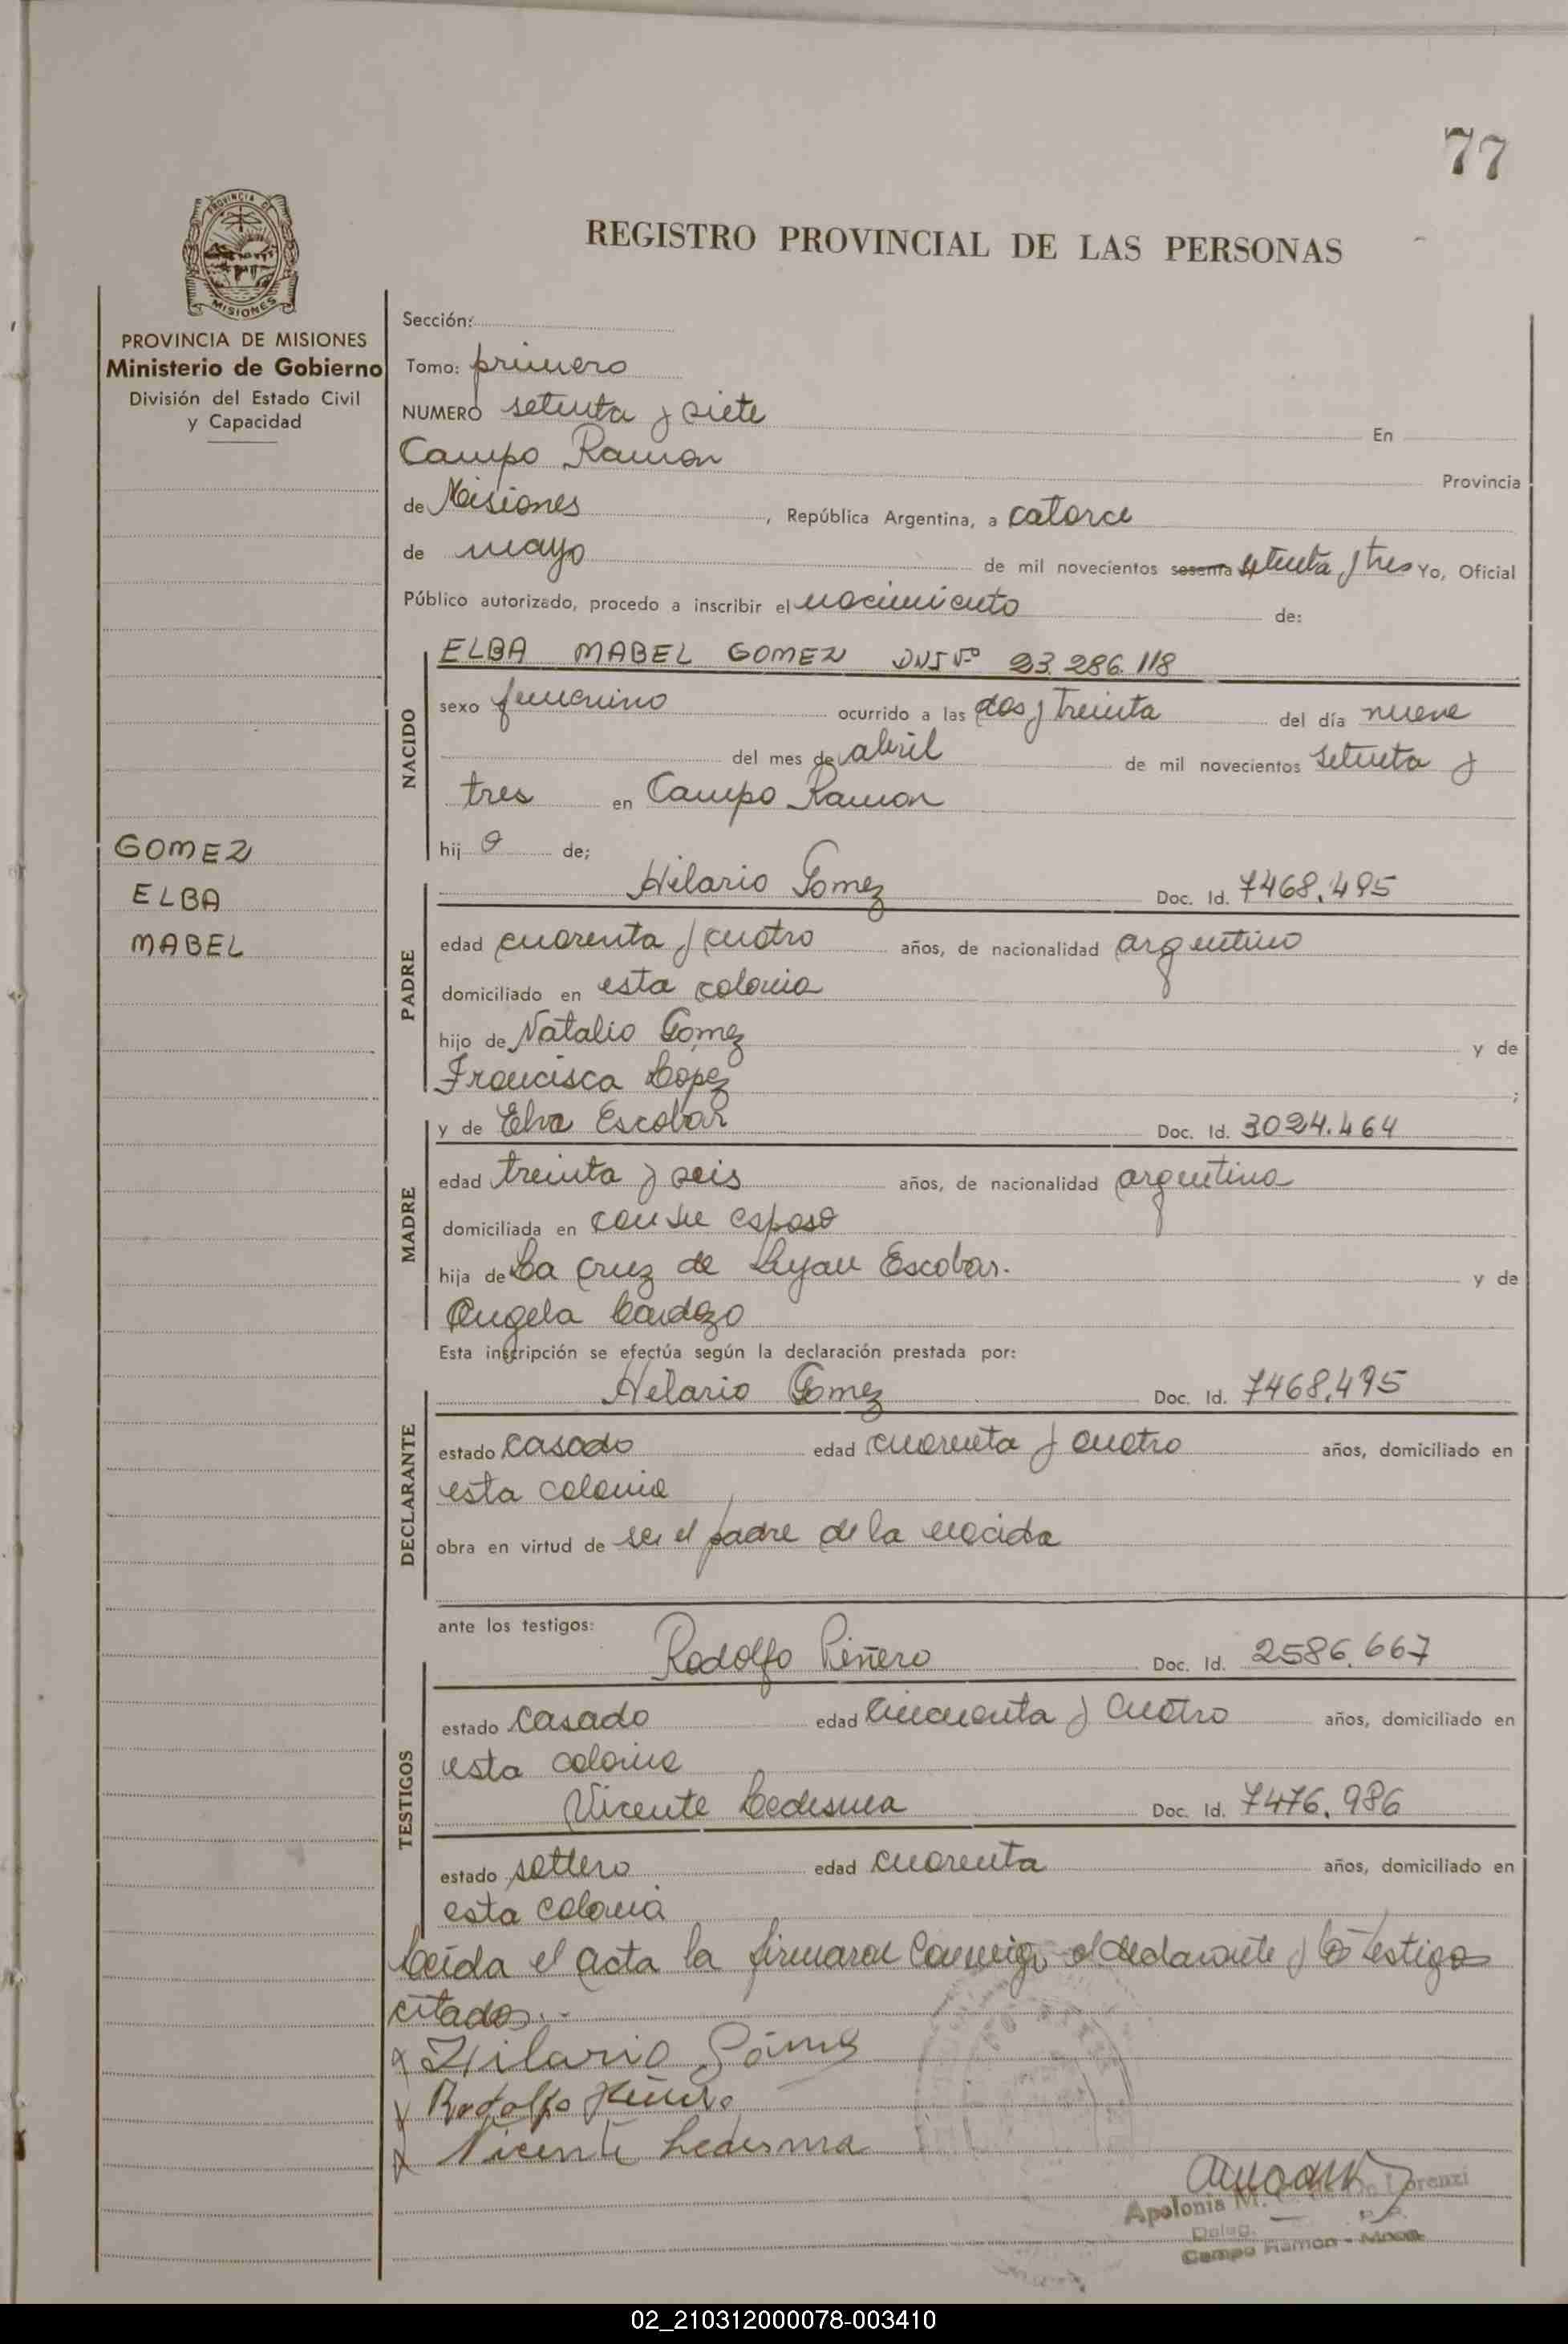 77
PROVINCIA DE
MISIONES
REGISTRO PROVINCIAL DE LAS PERSONAS
PROVINCIA DE MISIONES
Ministerio de Gobierno
División del Estado Civil
y Capacidad
GOMEZ
ELBA
MABEL
Sección:
Tomo: primero
NUMERO setenta y siete En
Campo Ramon Provincia
de Misiones, República Argentina, a catorce
de mayo de mil novecientos sesenta setenta y tres Yo, Oficial
Público autorizado, procedo a inscribir el nacimiento de:
NACIDO
ELBA MABEL GOMEZ DNI Nº 23.286.118
sexo femenino ocurrido a las dos y treinta del día nueve
del mes de abril de mil novecientos setenta y
tres en Campo Ramon
hij a de;
PADRE
Hilario Gomez Doc. Id. 7468.495
edad cuarenta y cuatro años, de nacionalidad argentino
domiciliado en esta colonia
hijo de Natalio Gomez y de
Francisca Lopez ;
MADRE
y de Elva Escobar Doc. Id. 3024.464
edad treinta y seis años, de nacionalidad argentina
domiciliada en con su esposo
hija de La Cruz de Lujan Escobar. y de
Angela Cardozo
Esta inscripción se efectúa según la declaración prestada por:
DECLARANTE
Hilario Gomez Doc. Id. 7468.495
estado casado edad cuarenta y cuatro años, domiciliado en
esta colonia
obra en virtud de ser el padre de la nacida
ante los testigos:
TESTIGOS
Rodolfo Piñero Doc. Id. 2586.667
estado casado edad cincuenta y cuatro años, domiciliado en
esta colonia
Vicente Ledesma Doc. Id. 7476.986
estado soltero edad cuarenta años, domiciliado en
esta colonia
Leída el acta la firmaron conmigo el declarante y los testigos
citados.-
Hilario Gómez
Rodolfo Piñero
Vicente Ledesma
Apolonia M. Lorenzi
Deleg.
Campo Ramon - Mnes.
02_210312000078-003410